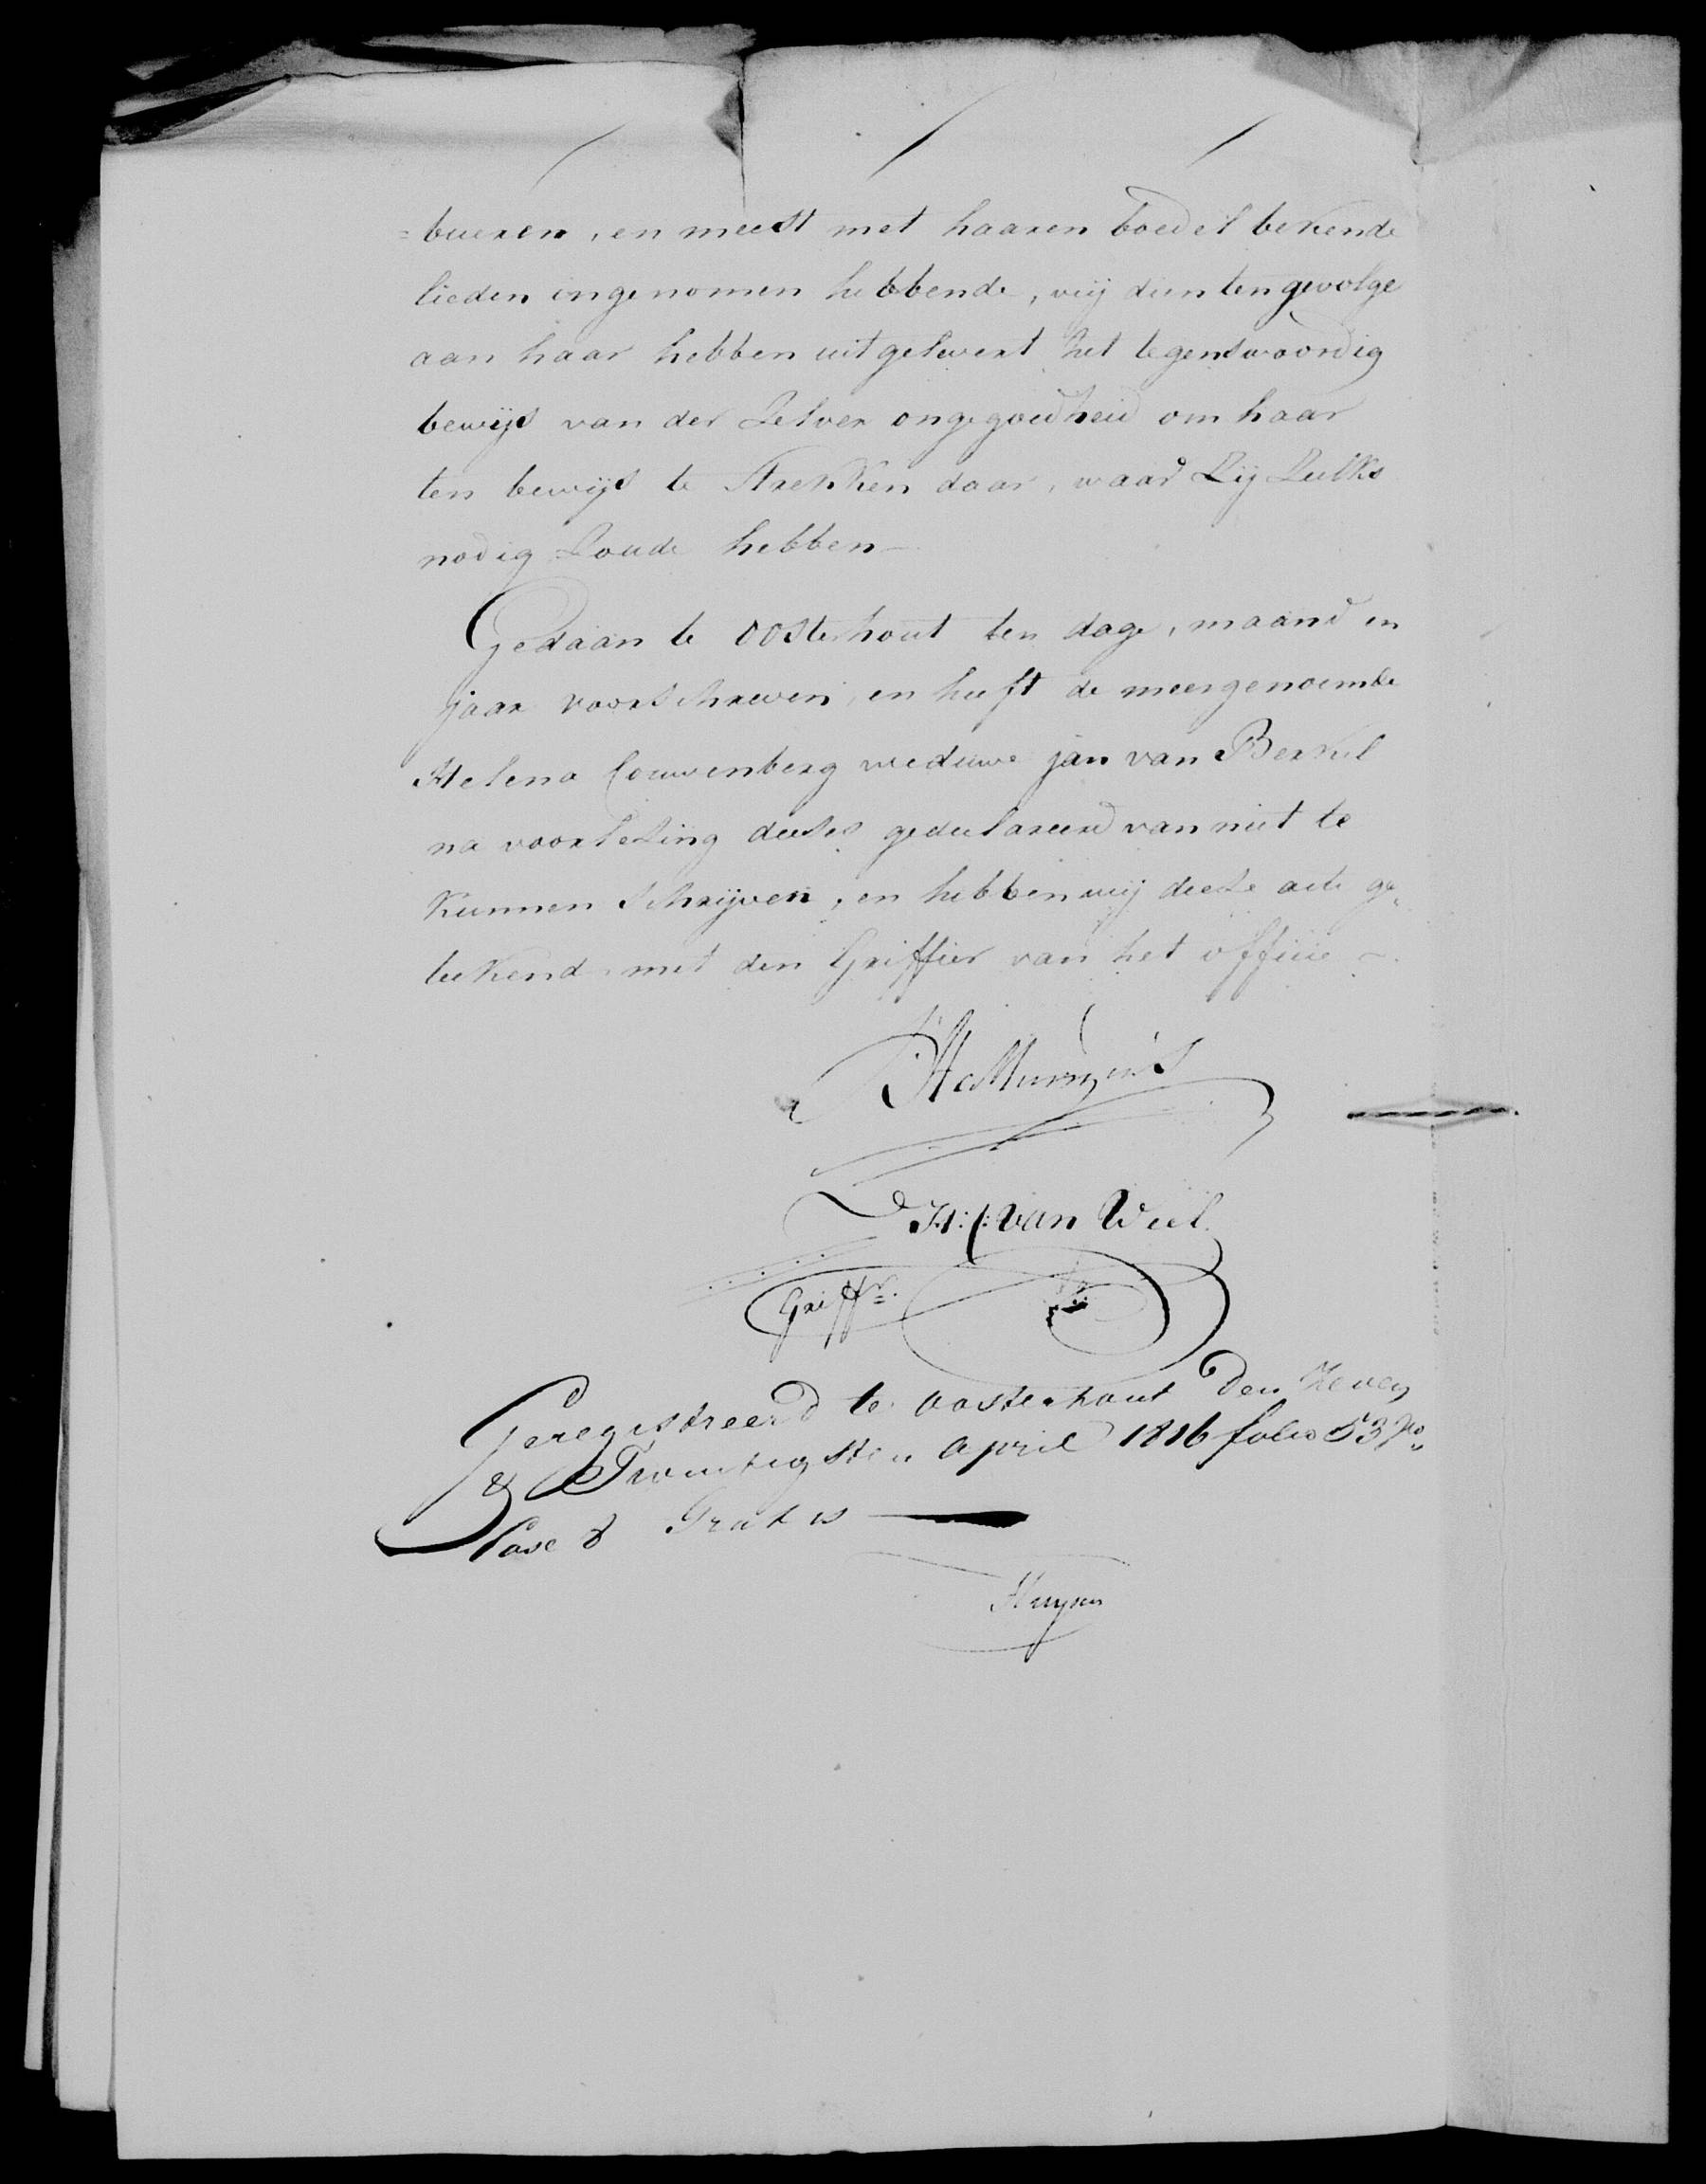 =bueren, en meest met haaren boedel bekende
lieden ingenomen hebbende, wij dien ten gevolge
aan haar hebben uitgelevert het tegenswoordig
bewijs van der Zelver ongegoedheid om haar
ten bewijs te strekken daar, waar Zij Zulks
nodig Zoude hebben —
Gedaan te Oosterhout ten dage, maand en
jaar voorschreven, en heeft de meergenoemde
Helena Couwenberg weduwe jan van Berkel
na voorlesing deeses gedeclareerd van niet te
kunnen schrijven, en hebben wij deese acte ge„
teekend met den Griffier van het officie ~
H: C: van Weel
Griffr.
Geregistreerd te Oosterhout den Zeven
& Twintigsten april 1816 folio 53 Vo
Case 8 Gratis —
Huysen